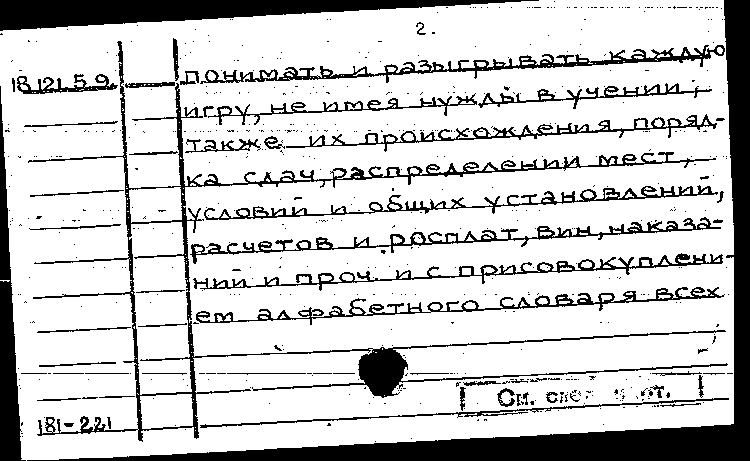 2.
18.121.5.9. понимать и разыгрывать каждую
игру, не имея нужды в учении;
также их происхождения, поряд-
ка сдач, распределении мест,
условий и общих установлений,
расчетов и росплат, вин, наказа-
ний и проч. и с присовокуплени-
ем алфабетного словаря всех
См.
181-221